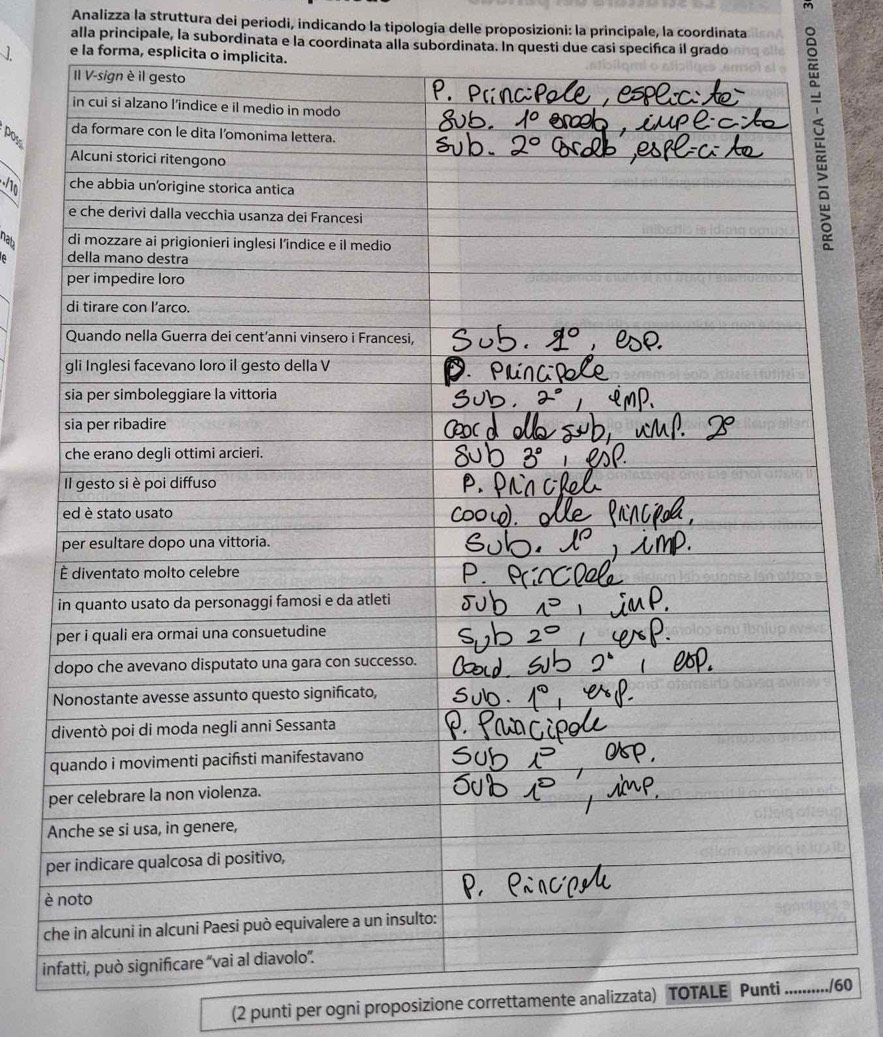 Analizza la struttura dei periodi, indicando la tipologia delle proposizioni: la principale, la coordinata
alla principale, la subordinata e la coordinata alla subordinata. In questi due casi specifica il grado
e la forma, esplicita o implicita.
Il V-sign è il gesto P. Principale, esplicita
in cui si alzano l'indice e il medio in modo Sub. 1° grado, implicita
da formare con le dita l'omonima lettera. Sub. 2° grado, esplicita
Alcuni storici ritengono
che abbia un'origine storica antica
e che derivi dalla vecchia usanza dei Francesi
di mozzare ai prigionieri inglesi l'indice e il medio
della mano destra
per impedire loro
di tirare con l'arco.
Quando nella Guerra dei cent'anni vinsero i Francesi, Sub. 1°, esp.
gli Inglesi facevano loro il gesto della V P. Principale
sia per simboleggiare la vittoria Sub. 2°, imp.
sia per ribadire Coord alla sub, imp. 2°
che erano degli ottimi arcieri. Sub 3°, esp.
Il gesto si è poi diffuso P. Principale
ed è stato usato coord. alla principale,
per esultare dopo una vittoria. Sub. 1°, imp.
È diventato molto celebre P. Principale
in quanto usato da personaggi famosi e da atleti Sub 1°, imp.
per i quali era ormai una consuetudine Sub 2°, esp.
dopo che avevano disputato una gara con successo. Coord. sub 2°, esp.
Nonostante avesse assunto questo significato, Sub. 1°, esp.
diventò poi di moda negli anni Sessanta P. Principale
quando i movimenti pacifisti manifestavano Sub 1°, esp.
per celebrare la non violenza. Sub 1°, imp.
Anche se si usa, in genere,
per indicare qualcosa di positivo,
è noto P. Principale
che in alcuni in alcuni Paesi può equivalere a un insulto:
infatti, può significare "vai al diavolo".
(2 punti per ogni proposizione correttamente analizzata) TOTALE Punti ........../60
PROVE DI VERIFICA - IL PERIODO
../10